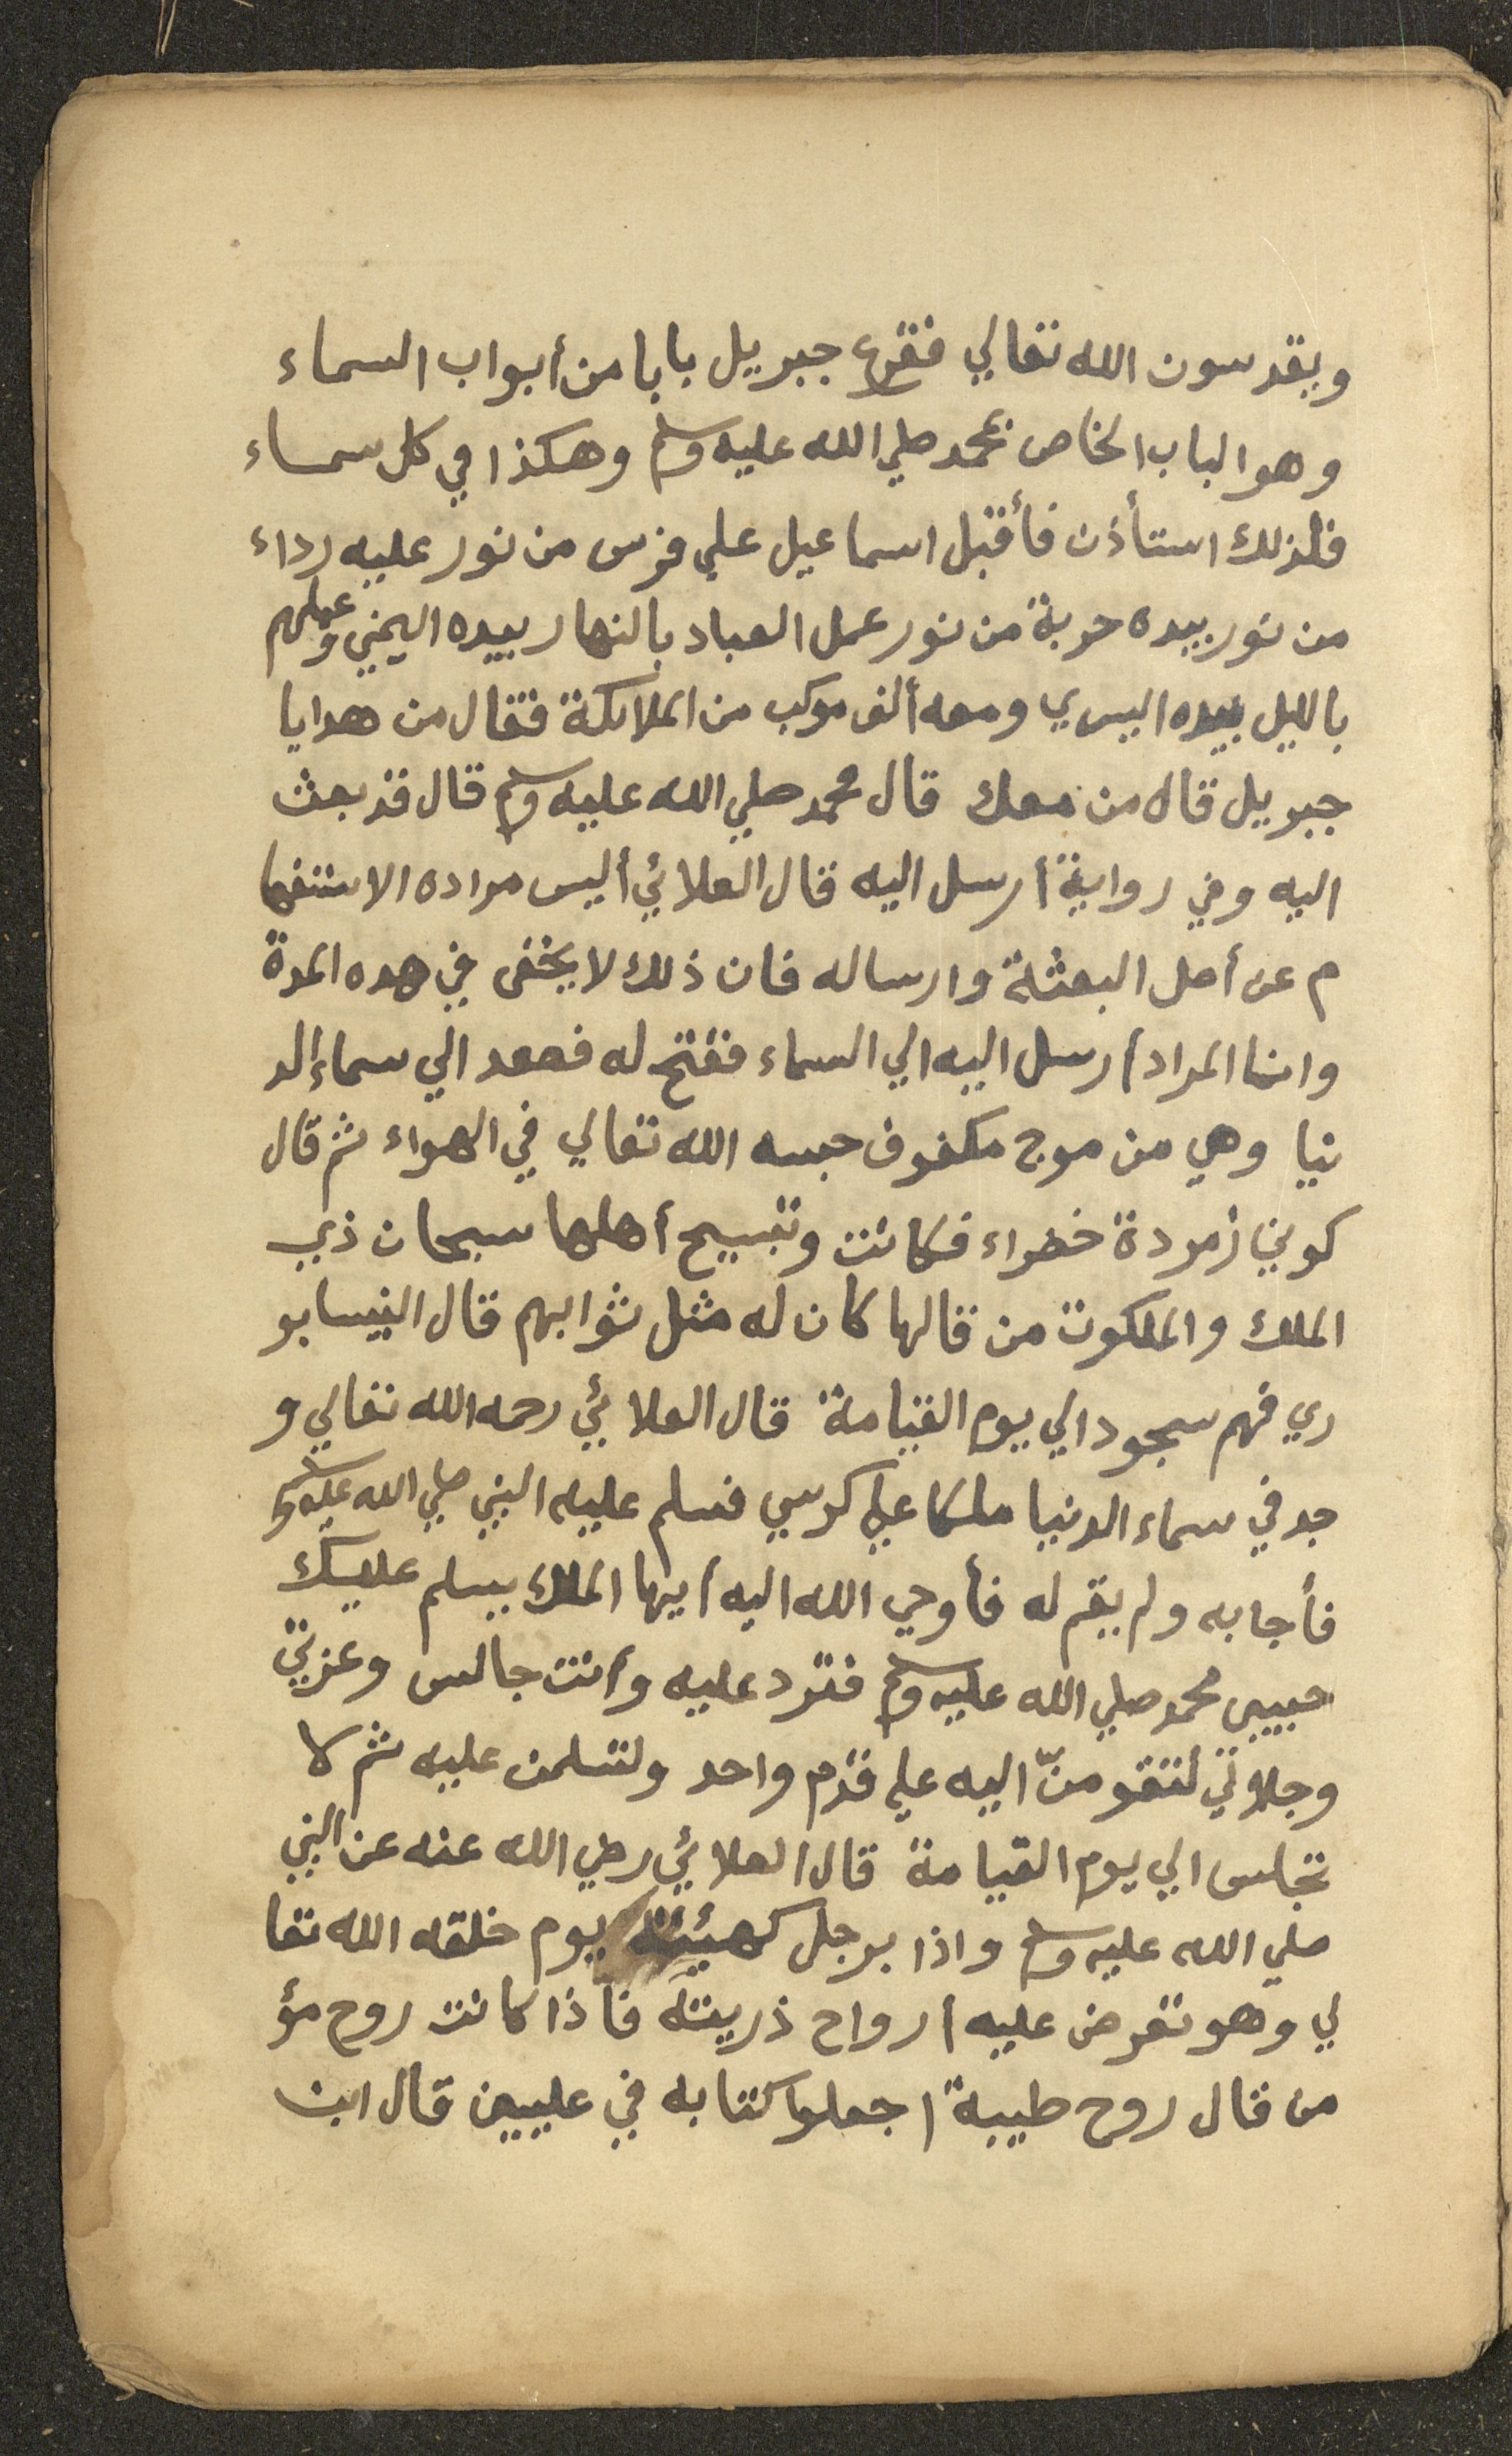 ويقدسون الله تعالي فقرع جبريل بابا من أبواب السماء
وهو الباب الخاص بمحمد صلي الله عليه وسلم وهكذا في كل سماء
فلذلك استأذن فأقبل اسماعيل علي فرس من نور عليه رداء
من نور بيده حربة من نور عمل العباد بالنهار بيده اليمني وعملهم
بالليل بيده اليسري ومعه ألف موكب من الملائكة فقال من هدايا
جبريل قال من معك قال محمد صلي الله عليه وسلم قال قد بعث
اليه وفي رواية أرسل اليه قال العلائي أليس مراده الاستفها
م عن أصل البعثة وارساله فان ذلك لا يخفى في هده المدة
وانما المراد أرسل اليه الي السماء ففتح له فصعد الي سماء الد
نيا وهي من موج مكفوف حبسه الله تعالي في الهواء ثم قال
كوني زمردة خضراء فكانت وتسبيح أهلها سبحان ذي
الملك والملكوت من قالها كان له مثل ثوابهم قال النيسابو
ري فهم سجود الي يوم القيامة قال العلائي رحمه الله تعالي و
جد في سماء الدنيا ملكا علي كرسي فسلم عليه النبي صلي الله عليه وسلم
فأجابه ولم يقم له فأوحي الله اليه أيها الملك يسلم عليك
حبيبي محمد صلي الله عليه وسلم فترد عليه وأنت جالس وعزتي
وجلالي لتقومنّ اليه علي قدم واحد ولتسلمن عليه ثم لا
تجلس الي يوم القيامة قال العلائي رضي الله عنه عن النبي
صلي الله عليه وسلم واذا برجل كهيئته يوم خلقه الله تعا
لي وهو تعرض عليه أرواح ذريته فاذا كانت روح مؤ
من قال روح طيبة اجعلوا كتابه في عليين قال ابن